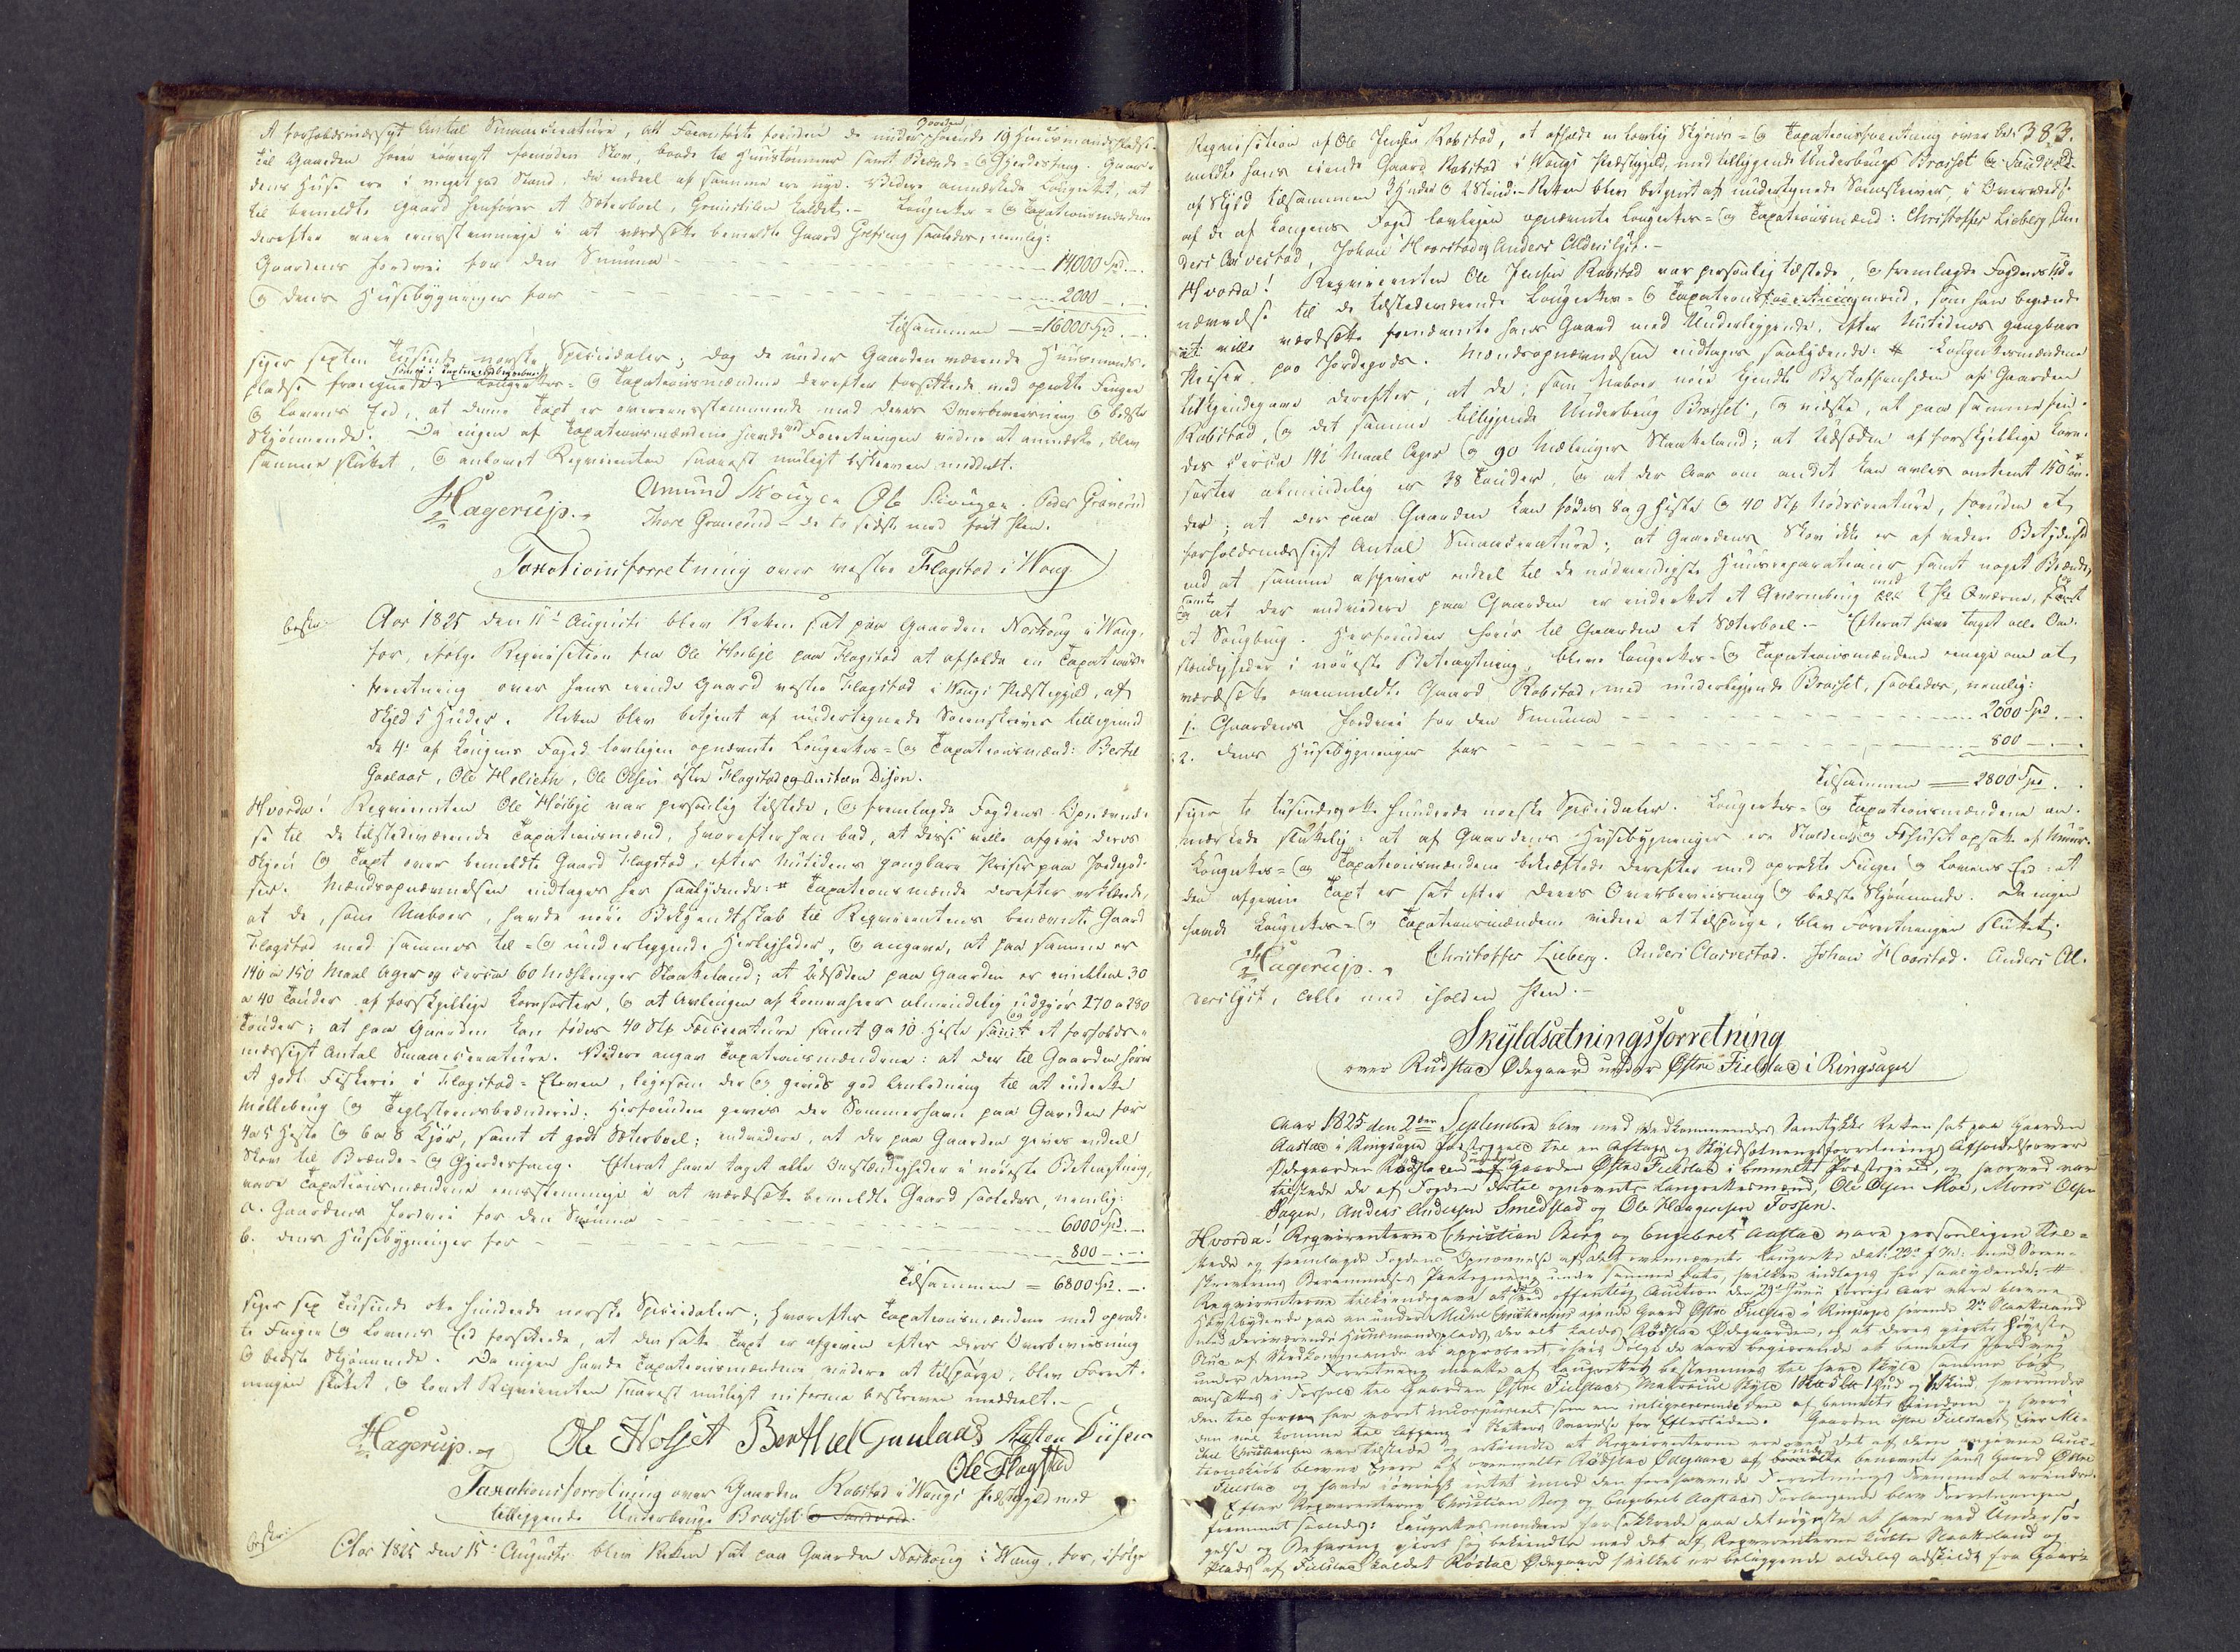 et forholdsmæssigt Antal Smaacreature, alt Foranførte foruden de under Gaarden hørende 19 Huusmandspladse.
Til Gaarden hører iøvrigt fornøden Skov, baade til Huustømmer samt Brænde- og Gjerdefang. Gaar-
dens Huse ere i meget god Stand, da endeel af samme ere nye. Videre anmærkede Laugrettet, at
til bemeldte Gaard henhører et Sæterboel, kaldet. - Laugrettes- og Taxationsmændene
derefter vare eensstemmige i at værdsætte bemeldte Gaard saaledes, nemlig:
Gaardens Jordvei for den Summa - - - 14000 Spd. -
og dens Huusbygninger for - - - 2000 - . -
tilsammen = 16000 Spd. -
siger sexten Tusinde norske Speciedaler; dog de under Gaarden værende Huusmands-
pladse Laugrettes- og Taxationsmændene derefter forsikkrede med oprakte Fingre
og Lovens Eed, at denne Taxt er overeensstemmende med deres Overbeviisning og bedste
Skjønnende. Da ingen af Taxationsmændene havde ved Forretningen videre at anmærke, blev
samme sluttet, og anlovet Reqvirenten snarest muligt beskreven meddelt.
Hagerup. Amund Skougen Ole Skougen. Peder Grønerud
Thore Grønerud - de to sidste med ført Pen.
Taxationsforretning over vestre Flagstad i Wang
beskr: Aar 1825 den 15de Augusti blev Retten sat paa Gaarden Norhoug i Wang,
for, ifølge Reqvisition fra Ole Holset paa Flagstad at afholde en Taxations-
forretning over hans eiende Gaard vestre Flagstad i Wangs Præstegjeld, af
Skyld 5 Huder. Retten blev betjent af undertegnede Sorenskriver tilligemed
de 4re af Kongens Foged lovligen opnævnte Laugrettes- og Taxationsmænd: Bertel
Gaalaas, Ole Holseth, Ole Olsen østre Flagstad og Anstæn Disen.
Hvorda! Reqvirenten Ole Holset var personlig tilstede, og fremlagde Fogdens Opnævnel-
se til de tilstedeværende Taxationsmænd, hvorefter han bad, at disse ville afgive deres
Skjøn og Taxt over bemeldte Gaard Flagstad, efter Nutidens gangbare Priser paa Jordegod-
ser. Mandsopnævnelsen indtages her saalydende: # Taxationsmændene derefter erklærede,
at de, som Naboer, havde nøie Bekjendtskab til Reqvirentens benævnte Gaard
Flagstad med sammes til- og underliggende Herligheder, og angave, at paa samme er
140 a 150 Maal Ager og circa 60 Mælinger Slaatteland; at Udsæden paa Gaarden er imellem 30
a 40 Tønder af forskjellige Kornsorter, og at Avlingen af Kornvahrer almindelig udgjør 270 a 280
Tønder; at paa Gaarden kan fødes 40 Stk Fæecreature samt 9 a 10 Heste samt et forholds-
mæssigt Antal Smaacreature. Videre angav Taxationsmændene: at der til Gaarden hører
et godt Fiskerie i Flagstad-Elven, ligesom der og gives god Anledning til at indrette
Møllebrug og Teglsteensbrænderie. Herforuden gives der Sommerhavn paa Gaarden for
4 a 5 Heste og 6 a 8 Kjør, samt et godt Sæterboel; endvidere, at der paa Gaarden gives endeel
Skov til Brænde- og Gjerdefang. Efterat have taget alle Omstændigheder i nøieste Betragtning,
vare Taxationsmændene eensstemmige i at værdsætte bemeldte Gaard saaledes, nemlig:
a. Gaardens Jordvei for den Summa - - - 6000 Spd. -
b. dens Huusbygninger for - - - 800 - . -
Tilsammen = 6800 Spd. -
siger sex Tusinde otte Hundrede norske Speciedaler; hvorefter Taxationsmændene med oprak-
te Fingre og Lovens Eed forsikkrede, at den satte Taxt er afgiven efter deres Overbeviisning
og bedste Skjønnende. Da ingen havde Taxationsmændene videre at tilspørge, blev Forret-
ningen sluttet, og lovet Reqvirenten snarest muligt in forma beskreven meddeelt. -
Hagerup. Ole Holset Berthel Gaulaas Ansten Diisen
Ole Flagstad
Taxationsforretning over Gaarden Robstad i Wangs Præstegjeld med
tilliggende Underbrug Braset og Sandvold.
beskr: Aar 1825 den 15de Augusti blev Retten sat paa Gaarden Norhoug i Wang, for, ifølge
383.
Reqvisition af Ole Jensen Robstad, at afholde en lovlig Skjøns- og Taxationsforretning over be-
meldte hans eiende Gaard Robstad i Wangs Præstegjeld, med tilliggende Underbrug Braset og Sandvold
af Skyld tilsammen 3 Huder 2 Skind. - Retten blev betjent af undertegnede Sorenskriver i Overværelse
af de af Kongens Foged lovligen opnævnte Laugrettes- og Taxationsmænd: Christopher Lieberg, An-
ders Aarvestad, Johan Horstad og Anders Alderslyst. -
Hvorda! Reqvirenten Ole Jensen Robstad var personlig tilstede, og fremlagde Fogdens Op-
nævnelse til de tilstedeværende Laugrettes- og Taxationsmænd, som han begjærede
ville værdsætte fornævnte hans Gaard med Underliggende, efter Nutidens gangbare
Priser paa Jordegods. Mandsopnævnelsen indtages, saalydende: # Laugrettesmændene
tilkjendegave derefter, at de, som Naboer nøie kjendte Beskaffenheden af Gaarden
Robstad, og det samme tilliggende Underbrug Braset, og vidste, at paa samme fin-
des circa 142 Maal Ager og 90 Mælinger Slaatteland; at Udsæden af forskjellige Korn-
sorter almindelig er 38 Tønder, og at der Aar om andet kan avles omtrent 150 Tøn-
der; at der paa Gaarden kan fødes 8 a 9 Heste og 40 Stk Nødecreature, foruden et
forholdsmæssigt Antal Smaacreature; at Gaardens Skov ikke er af videre Betydenhed
end at samme afgiver endeel til de nødvendigste Huusreparationer samt noget Brænde,
samt at der endvidere paa Gaarden er indrettet et Qværnebrug med 2 Stk Qværne, og
et Saugbrug. Herforuden hører til Gaarden et Sæterboel. - Efterat have taget alle Om-
stændigheder i nøieste Betragtning, bleve Laugrettes- og Taxationsmændene enige om at
værdsætte ovenmeldte Gaard Robstad, med underliggende Braset, saaledes, nemlig:
1. Gaardens Jordvei for den Summa - - - 2000 Spd. -
2. dens Huusbygninger for - - - 800 - . -
Tilsammen = 2800 Spd. -
siger to tusinde otte hundrede norske Speciedaler. Laugrettes- og Taxationsmændene an-
mærkede sluttelig: at af Gaardens Huusbygninger ere Stalden og Fæhuset opsatte af Muur.
Laugrettes- og Taxationsmændene bekræftede derefter med oprakte Fingre og Lovens Eed: at
den afgivne Taxt er sat efter deres Overbeviisning og bedste Skjønnende. Da ingen
havde Laugrettes- og Taxationsmændene videre at tilspørge, blev Forretningen sluttet.
Hagerup. Christopher Lieberg. Anders Aarvestad. Johan Horstad. Anders Al-
derslyst, alle med iholden Pen. -
Skyldsætningsforretning
over Rudstad Ødegaard under Østre Fielstad i Ringsager
Aar 1825 den 2den Septembre blev med Vedkommendes Samtykke Retten sat paa Gaarden
Aastad i Ringsager Præstegjeld til en Aftags og Skyldsætningsforretnings Afholdelse over
Ødegaarden Rødstad under Gaarden Østre Fielstad i bemeldte Præstegjeld, og hvorved var
tilstede de af Fogden dertil opnævnte Laugrettesmænd, Ole Olsen Moe, Mons Olsen
Bagen, Anders Andersen Smedstad og Ole Haagensen Fossen.
Hvorda! Reqvirenterne Christian Berg og Engebret Aastad vare personligen til-
stede og fremlagde Fogdens Opnævnelse af det ovennævnte Laugrette dat: 23de f. M. med Soren-
skriverens Berammelses Paategning under samme Dato, hvilken indtages her saalydende: #
Reqvirenterne tilkiendegave at ved offentlig Auction den 29de Junii forrige Aar vare blevne
Høystbydende paa en under Michel Christiansens eiende Gaard Østre Fielstad i Ringsager hørende Slaatteland
med derværende Huusmandsplads, der alt kaldes Rødstad Ødegaarden, og at deres giorte høyeste
Bud af Vedkommende er approberet, i hvis Følge de vare begierende at bemeldte Jordvei
under denne Forretning maatte af Laugrettet bestemmes til hvad Skyld samme bør
ansættes i Forhold til Gaarden Østre Fielstads Matricul Skyld 1 Hud og Skind, hvorunder
den til forn har været incorporeret som en integrerende Deel af bemeldte Eiendom og hvori
den vil komme til Afgang i Skatters Svarelse for Eftertiden. Gaarden østre Fielstads Eier Mi-
chel Christiansen var tilstede og erkiendte at Reqvirenterne ere ved det af dem angivne Auc-
tionskiøb blevne Eiere af ovenmeldte Rødstad Ødegaard under benævnte hans Gaard Østre
Fielstad og havde iøvrigt intet imod den forehavende Forretnings Fremme at erindre.
Efter Reqvirenterne Christian Berg og Engebret Aastads Forlangende blev Forretningen
fremmet saaledes: Laugrettesmændene forsikkrede paa det nøyeste at have ved Undersø-
gelse og Befaring giort sig bekiendte med det af Reqvirenterne kiøbte Slaatteland og
Plads af Fielstad kaldet Røstad Ødegaard hvilket er beliggende aldeles adskildt fra Gaar-